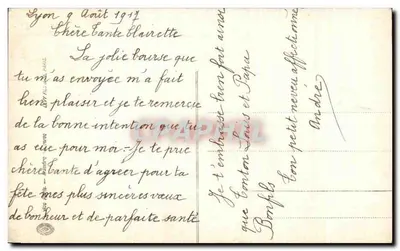 Lyon 9 Août 1917
Chère Tante Clairette
La jolie bourse que
tu m'as envoyée m'a fait
bien plaisir et je te remercie
de la bonne intention que tu
as eue pour moi - Je te prie
chère Tante d'agréer pour ta
fête mes plus sincères vœux
de bonheur et de parfaite santé
Je t'embrasse bien fort ainsi
que tonton Louis et Papa
Bonfils
ton petit neveu affectionné
André